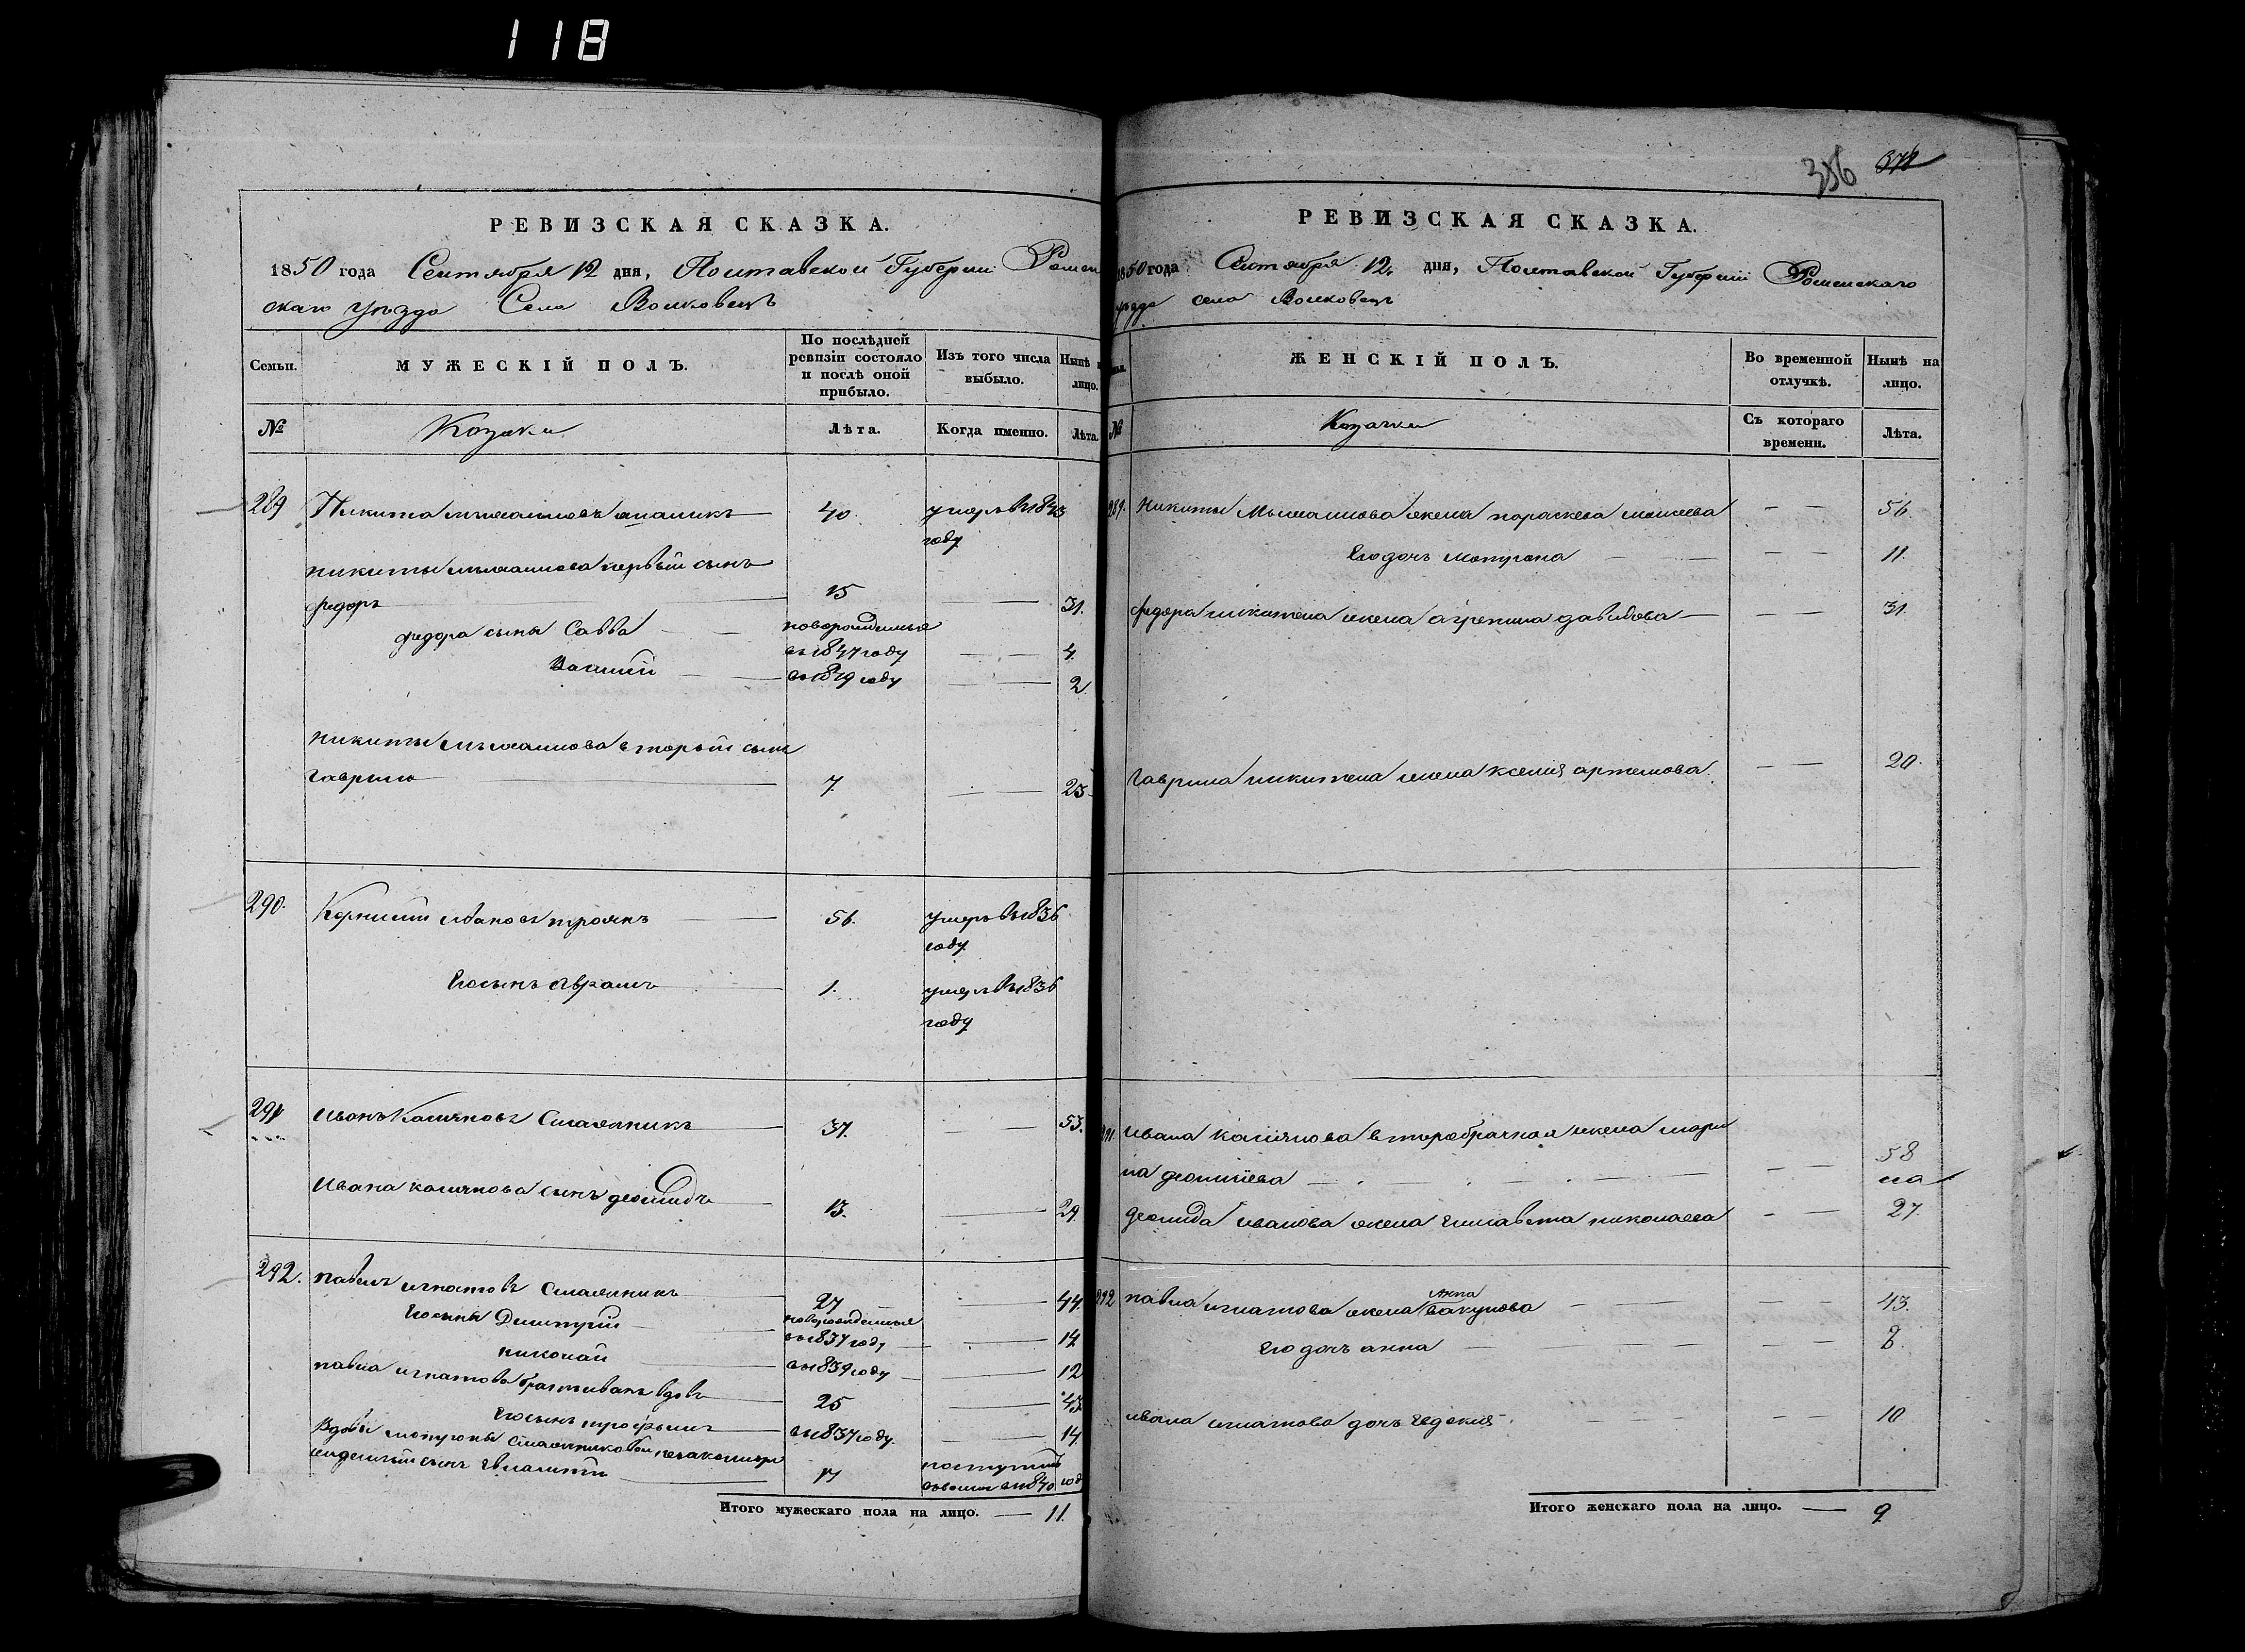 118
386 371
РЕВИЗСКАЯ СКАЗКА.
1850 года Сентября 12 дня, Полтавской Губерніи Ромен
скаго уѣзда Села Волковецъ
Семьи.
МУЖЕСКІЙ ПОЛЪ.
По послѣдней ревизіи состояло и послѣ оной прибыло.
Изъ того числа выбыло.
Нынѣ на лицо.
№
Козаки
Лѣта.
Когда именно.
Лѣта.
289 Никита 40. умеръ въ 1843
году
никиты первый сынъ
федоръ 15 31.
федора сыны Савва новорожденные
въ 1847 году 4.
Василій въ 1849 году 2.
никиты второй сынъ
гаврило 7. 23
290. Корнилій ивановъ троянъ 56. умеръ въ 1836
году
Его сынъ аврамъ 1. умеръ въ 1836
году
291 Иванъ Касяновъ 37. 53.
Ивана касянова сынъ деомидъ 13. 29.
292. павелъ игнатовъ 27 44
Его сыны Дмитрій новорожденные
въ 1837 году 14
николай въ 1839 году 12
павла игнатова братъ иванъ вдовъ 25 43
Его сынъ трофимъ въ 1837 году 14
Вдовы мотроны незаконоро
жденный сынъ 17 поступилъ
въ 1840 год
Итого мужескаго пола на лицо. — 11.
РЕВИЗСКАЯ СКАЗКА.
1850 года Сентября 12. дня, Полтавской Губерніи Роменскаго
уезда села Волковецъ
№
ЖЕНСКІЙ ПОЛЪ.
Во временной отлучкѣ.
Нынѣ на лицо.
Козачки
Съ котораго времени.
Лѣта.
289. Никиты жена параскева моисеева 56.
Его дочь мотрона 11.
федора никитина жена агрепина давидова 31.
гаврила никитина жена ксенія артемова. 20.
291. ивана касянова второбрачная жена мари
на деонисіева 58
деомида иванова жена елисавета николаева 27.
292 павла игнатова жена анна вакулова 43.
его дочь анна 8.
ивана игнатова дочь евдокия 10
Итого женскаго пола на лицо. — 9